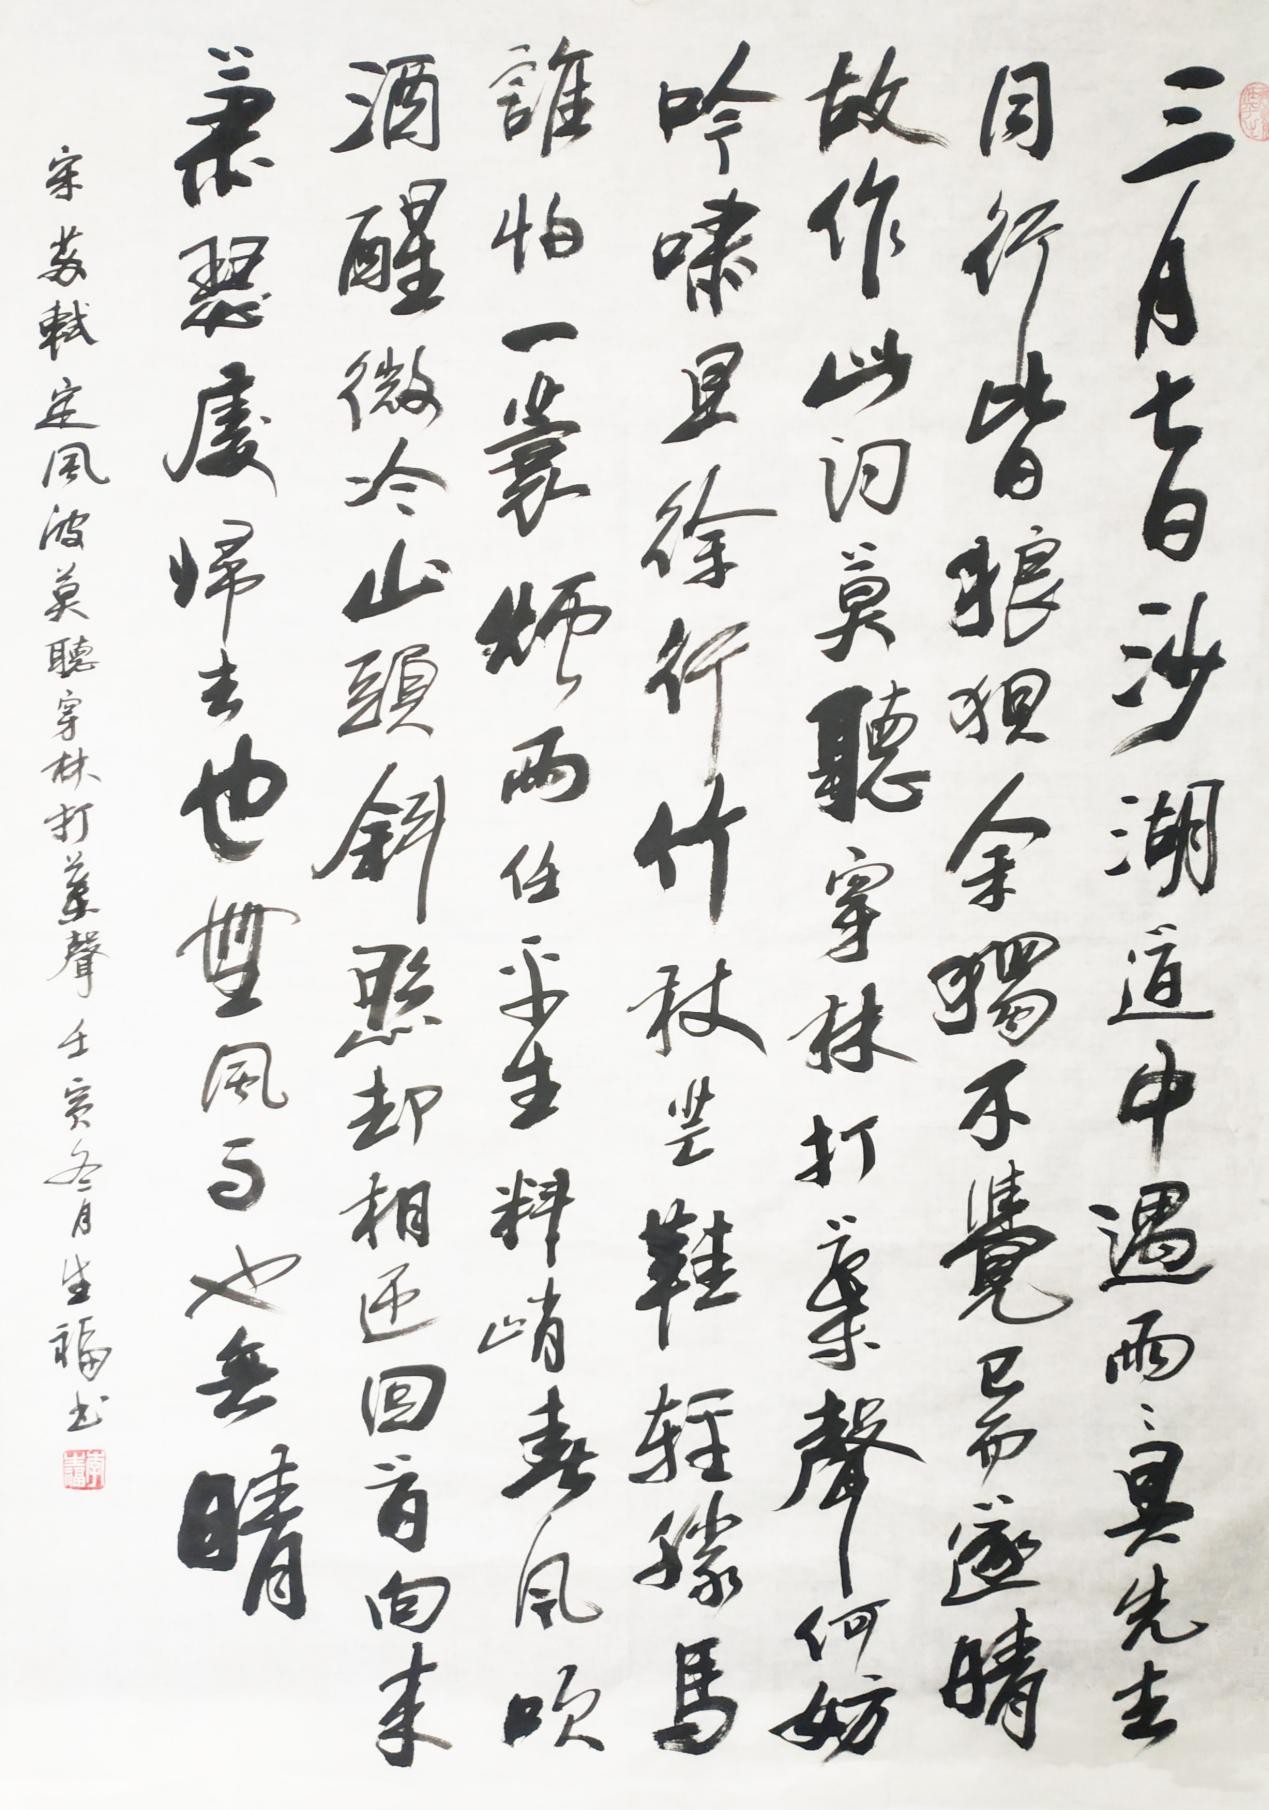 三月七日沙湖道中遇雨〻具先去
同行皆狼狽余獨不覺已而遂晴
故作此词莫聽穿林打葉聲何妨
吟嘯且徐行竹杖芒鞋輕勝馬
誰怕一蓑烟雨任平生料峭春風吹
酒醒微冷山頭斜照却相迎回首向来
蕭瑟處歸去也無風雨也無晴
宋蘇軾定風波莫聽穿林打葉聲 壬寅冬月生福书